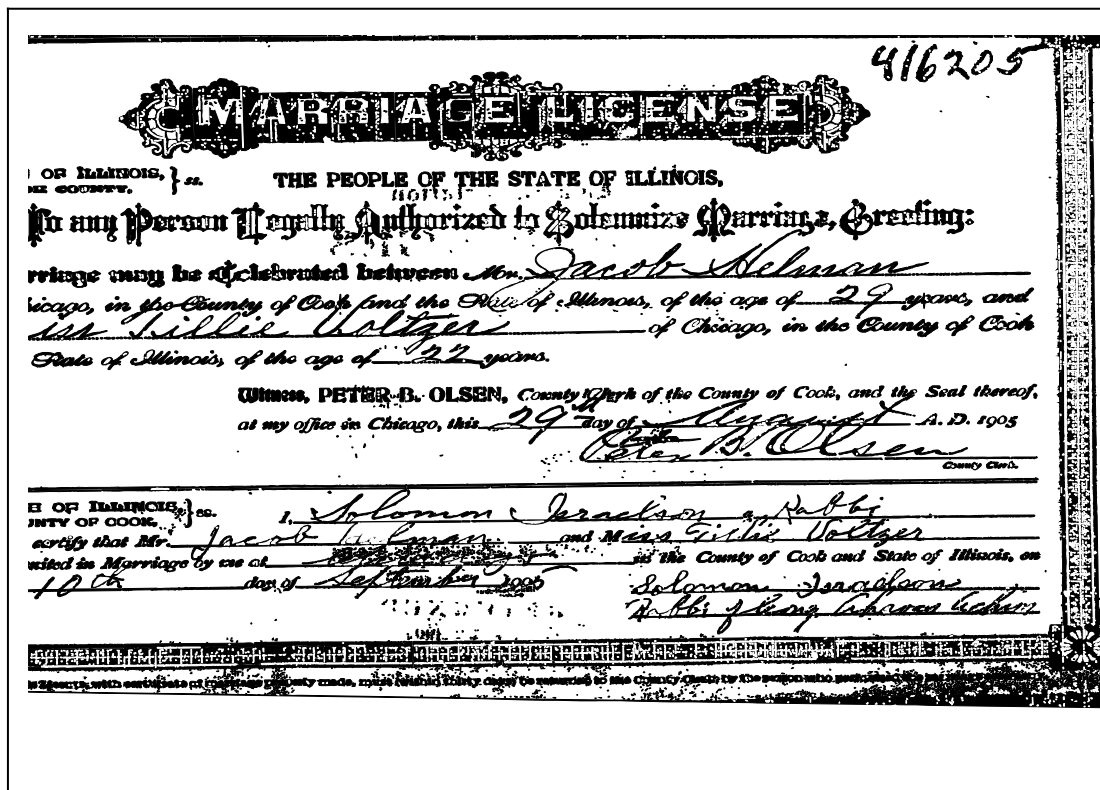 416205
MARRIAGE LICENSE
OF ILLINOIS, } ss. THE PEOPLE OF THE STATE OF ILLINOIS,
COUNTY,
To any Person Legally Authorized to Solemnize Marriage, Greeting:
rriage may be Celebrated between Mr. Jacob Helman
icago, in the County of Cook and the State of Illinois, of the age of 29 years, and
iss Tillie Voltzer of Chicago, in the County of Cook
State of Illinois, of the age of 22 years.
Witness, PETER B. OLSEN, County Clerk of the County of Cook, and the Seal thereof,
at my office in Chicago, this 29th day of August A. D. 1905
Peter B. Olsen
County Clerk.
E OF ILLINOIS, } ss. I, Solomon Israelson a Rabbi
UNTY OF COOK,
certify that Mr. Jacob Helman and Miss Tillie Voltzer
nited in Marriage by me at in the County of Cook and State of Illinois, on
10th day of September 1905 Solomon Israelson
Rabbi of Cong